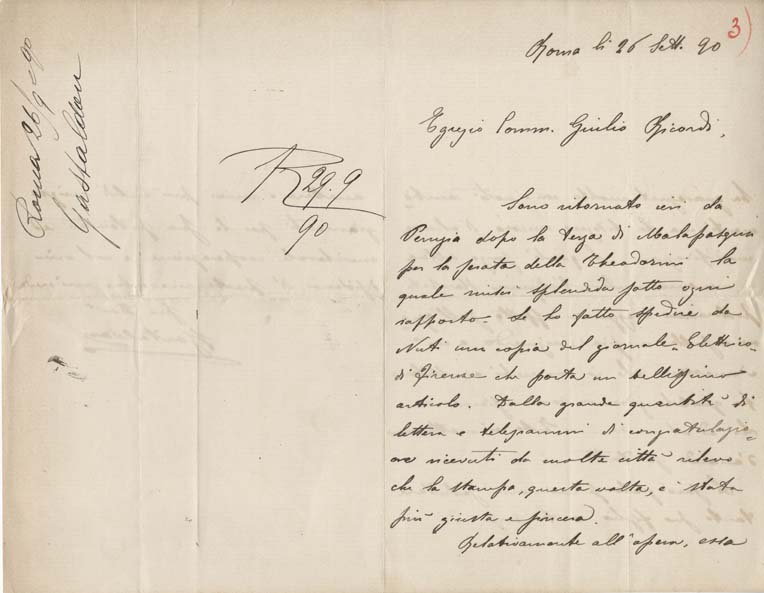 Roma 26/9 90
Gastaldon
R 29.9
90
3)
Roma li 26 Sett. 90
Egregio Comm. Giulio Ricordi,
Sono ritornato ieri da
Perugia dopo la terza di Malapasqua
per la serata della Theodorini la
quale riuscì splendida sotto ogni
rapporto. Le ho fatto spedire da
Nuti una copia del giornale "Elettrico"
di Firenze che porta un bellissimo
articolo. Dalla grande quantità di
lettere e telegrammi di congratulazio-
ne ricevuti da molte città rilevo
che la stampa, questa volta, è stata
più giusta e sincera.
Relativamente all'opera, essa